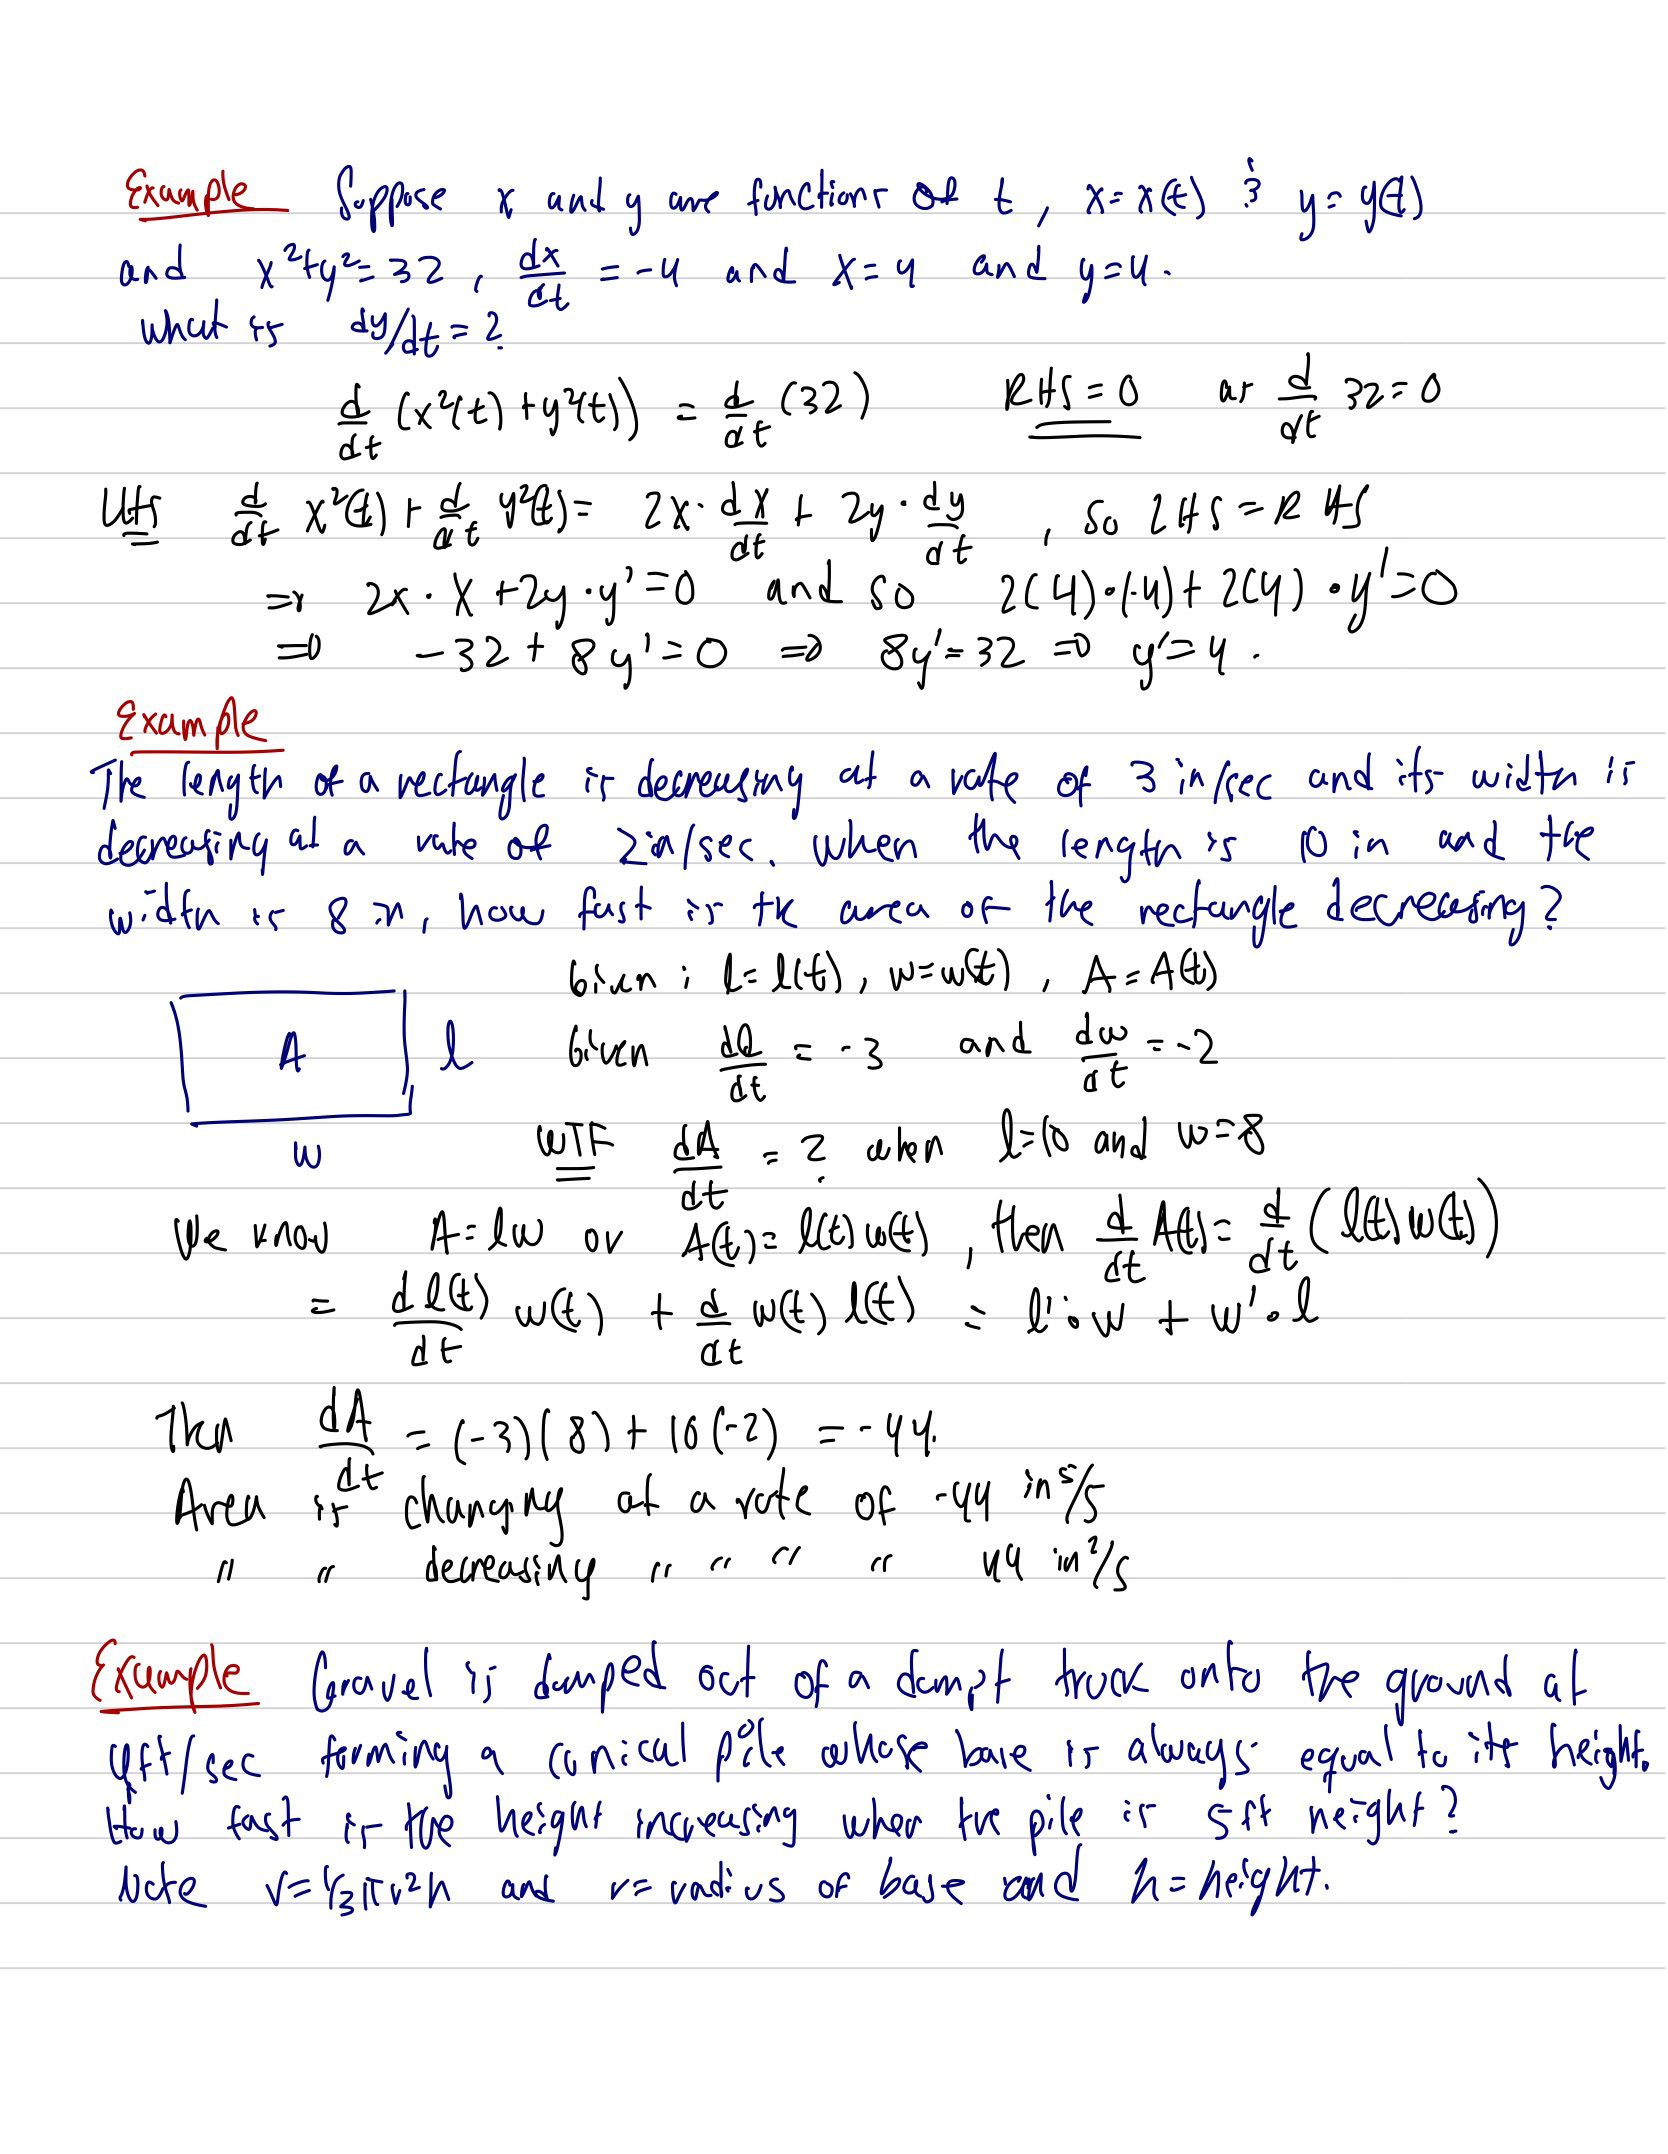 Example Suppose x and y are functions of t, x = x(t) & y = y(t)
and x²+y²=32, dx/dt = -4 and x=4 and y=4.
what is dy/dt = ?
d/dt (x²(t) + y²(t)) = d/dt (32) RHS = 0 as d/dt 32 = 0
LHS d/dt x²(t) + d/dt y²(t) = 2x · dx/dt + 2y · dy/dt, so LHS = RHS
⇒ 2x · x + 2y · y' = 0 and so 2(4)·(-4) + 2(4) · y' = 0
⇒ -32 + 8y' = 0 ⇒ 8y' = 32 ⇒ y' = 4.
Example
The length of a rectangle is decreasing at a rate of 3 in/sec and its width is
decreasing at a rate of 2in/sec. when the length is 10 in and the
width is 8 in, how fast is the area of the rectangle decreasing?
Given ; l = l(t), w = w(t), A = A(t)
A l Given dl/dt = -3 and dw/dt = -2
w WTF dA/dt = ? when l=10 and w=8
We know A = lw or A(t) = l(t) w(t), then d/dt A(t) = d/dt (l(t) w(t))
= dl(t)/dt w(t) + d/dt w(t) l(t) = l' · w + w' · l
Then dA/dt = (-3)(8) + 10(-2) = -44.
Area is changing at a rate of -44 in⁵/s
" " decreasing " " " " 44 in²/s
Example Gravel is dumped out of a dumpt truck onto the ground at
4ft/sec forming a conical pile whose base is always equal to its height.
How fast is the height increasing when the pile is 5ft height?
Note v=1/3πr²h and r = radius of base and h = height.